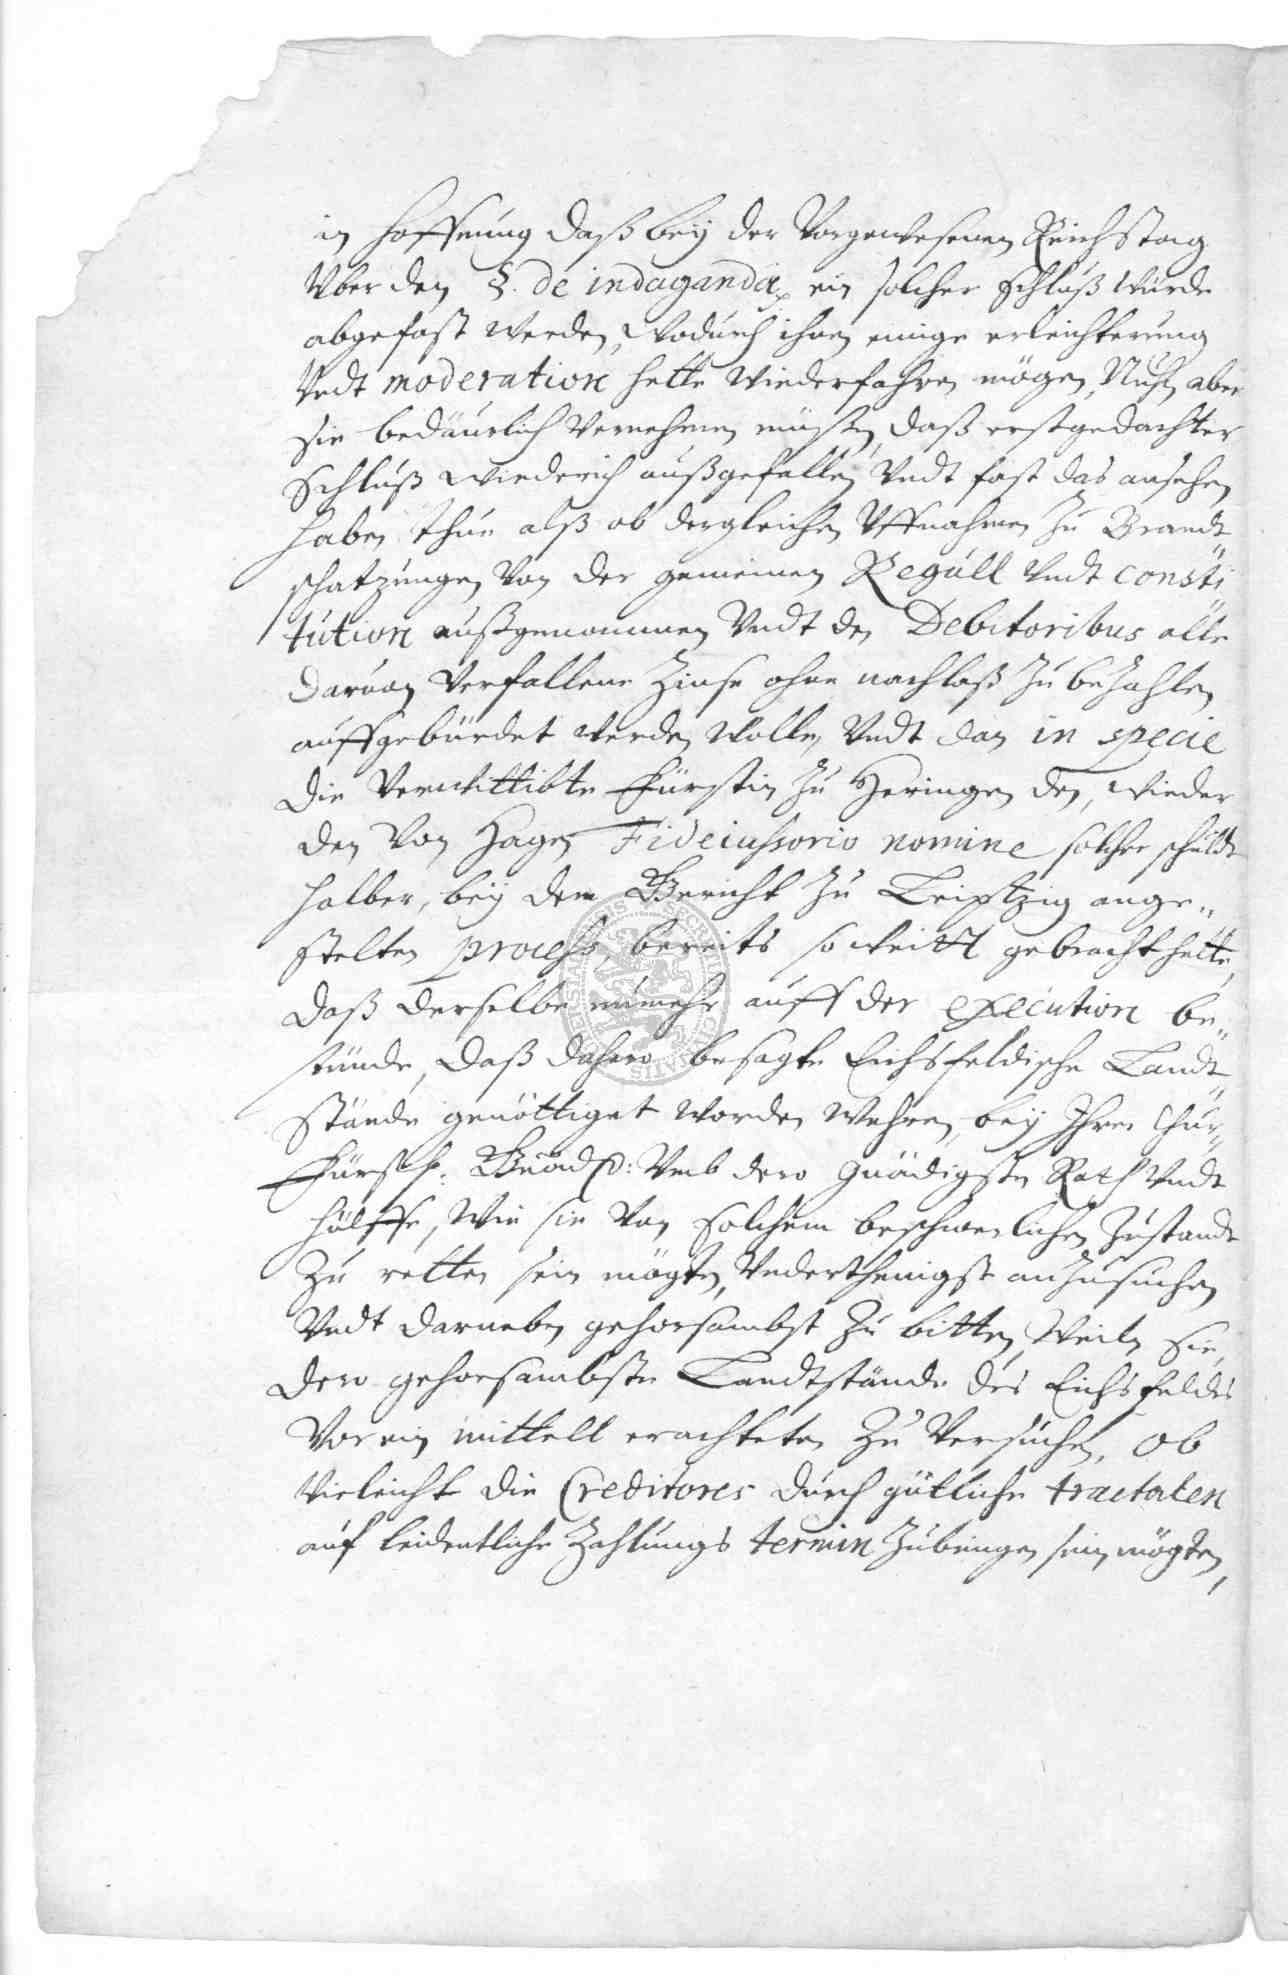 in Hoffnung daß beÿ der Vorgewesenen Reichstag
Vber den §. de indaganda ein solcher Schluß würde
abgefast werden, wodurch ihnen einige erleichterung
Vndt moderation hette wiederfahren mögen, Nuhn aber
sie bedäurlich Vernehmen müsten, daß erstgedachter
Schluß wiederich außgefallen, Vndt fast das ansehen
haben thue alß ob dergleichen Vffnahmen zu Brandt
schatzungen von der gemeinen Regull Vndt consti
tution außgenommen Vndt den Debitoribus alle
daruon Verfallene Zinse ohne nachlaß zu bezahlen
auffgebürdet werden wolle, Vndt dan in specie
die Verwittibte Fürstin zu Heringen den, wieder
den von Hagen Fideiussorio nomine solcher schuldt
halber, beÿ dem Gericht zu Leiptzig ange„
stelten process, bereits so weitt gebracht hette,
daß derselbe nunmehr auff der execution be„
stünde, Daß dahero besagte Eichsfeldische Landt„
Stände genöttiget worden wehren, beÿ Ihrer Chur„
Fürstl: Gnad: Vmb dero gnädigsten Rath Vndt
hülffe, Wie sie von solchem beschwerlichen Zustande
zu retten sein mögten, Vnderthenigst anzusuchen
Vndt darneben gehorsambst zu bitten, Weiln sie,
dero gehorsambste Landtstände des Eichsfeldes
Vor ein mittell erachteten zu Versuchen, ob
Vieleicht die Creditores durch gütliche tractaten
auf leidentliche Zahlungs termin zubringen sein mögten,